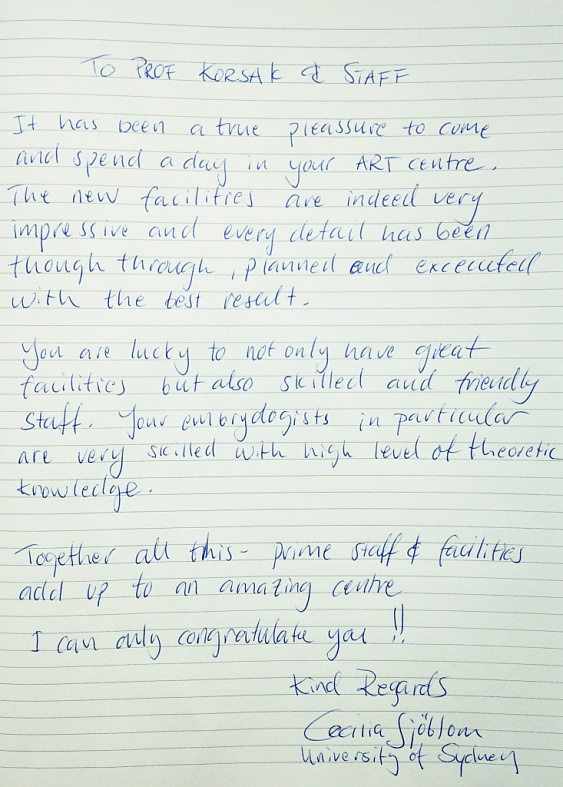 To PROF KORSAK & STAFF
It has been a true pleassure to come
and spend a day in your ART centre.
The new facilities are indeed very
impressive and every detail has been
though through, planned and excecuted
with the best result.
You are lucky to not only have great
facilities but also skilled and friendly
staff. Your embryologists in particular
are very skilled with high level of theoretic
knowledge.
Together all this - prime staff & facilities
add up to an amazing centre
I can only congratulate you !!
Kind Regards
Cecilia Sjöblom
University of Sydney